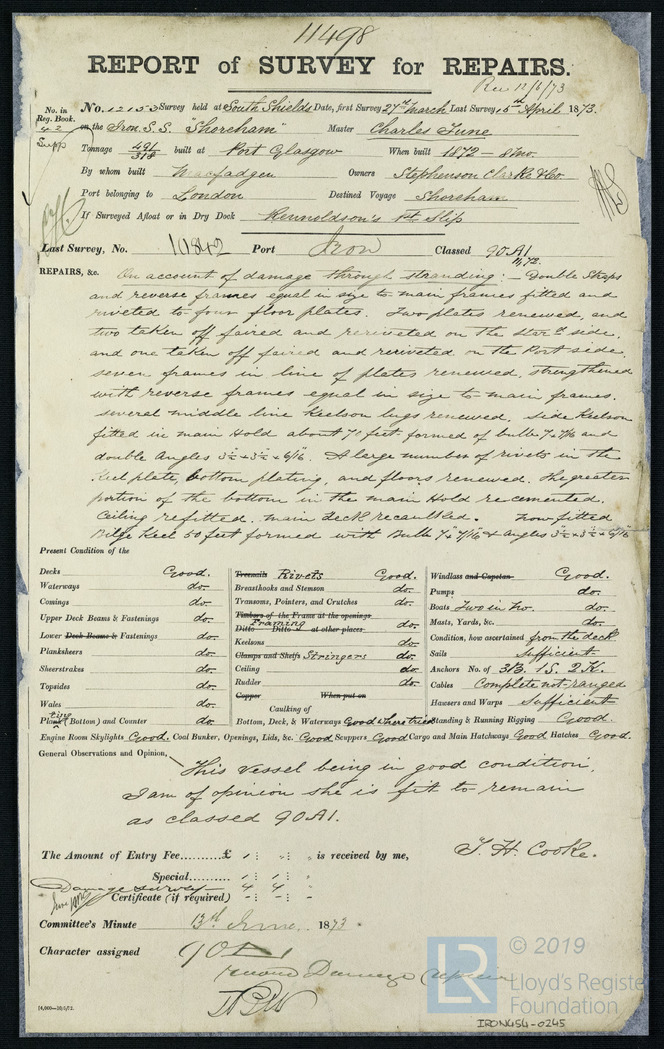 11498
REPORT of SURVEY for REPAIRS.
Rec 12/6/73
No. in Reg. Book.
42
Supp
No. 12153 Survey held at South Shields Date, first Survey 27th March Last Survey 15th April 1873.
on the Iron S.S. "Shoreham" Master Charles June
Tonnage 491/318 built at Port Glasgow When built 1872 – 8mo.
By whom built Owners Stephenson Clarke & Co
Port belonging to London Destined Voyage Shoreham
If Surveyed Afloat or in Dry Dock Rennoldson's Pt Slip
Last Survey, No. 10842 Port Iron Classed 90A1
72
REPAIRS, &c. On account of damage through stranding: – Double Straps
and reverse frames equal in size to main frames fitted and
riveted to four floor plates. Two plates renewed, and
two taken off faired and reriveted on the Starbd side,
and one taken off faired and reriveted on the Port side,
seven frames in line of plates renewed, strengthened
with reverse frames equal in size to main frames.
several middle line Keelson lugs renewed. Side Keelson
fitted in main Hold about 70 feet formed of bulb 7 x 7/16 and
double Angles 3½ x 3½ x 6/16. A large number of rivets in the
Keel plate, bottom plating, and floors renewed. The greater
portion of the bottom in the main Hold recemented.
Ceiling refitted. main Deck recaulked. now fitted
Bilge Keel 50 feet formed with Bulb 7 x 7/16 & Angles 3½ x 3½ x 6/16
Present Condition of the
Decks Good.
Waterways do.
Comings do.
Upper Deck Beams & Fastenings do.
Lower Deck Beams & Fastenings do.
Planksheers do.
Sheerstrakes do.
Topsides do.
Wales do.
Plank (Bottom) and Counter do.
Treenails Rivets Good.
Breasthooks and Stemson do.
Transoms, Pointers, and Crutches do.
Timbers of the Frame at the openings
Framing
Ditto Ditto at other places do.
Keelsons do.
Clamps and Shelfs Stringers do.
Ceiling do.
Rudder do.
Copper When put on
Caulking of
Bottom, Deck, & Waterways Good where tried
Windlass and Capstan Good.
Pumps do.
Boats Two in No. do.
Masts, Yards, &c. do.
Condition, how ascertained from the deck
Sails Sufficient
Anchors No. of 3B. 1S. 2K.
Cables Complete not ranged
Hawsers and Warps Sufficient
Standing & Running Rigging Good.
Engine Room Skylights Good. Coal Bunker, Openings, Lids, &c. Good Scuppers Good Cargo and Main Hatchways Good Hatches Good.
General Observations and Opinion,
This vessel being in good condition,
I am of opinion she is fit to remain
as classed 90A1.
The Amount of Entry Fee..........£ 1 : " : " is received by me,
T. H. Cooke.
Special.......... 1 : 1 : "
Damage survey 4 4 "
Certificate (if required) - : - :
Committee's Minute 13th June 1873
Character assigned 90A1
Damage
14,000—30/5/72.
LR © 2019
Lloyd's Register
Foundation
IRON454-0245